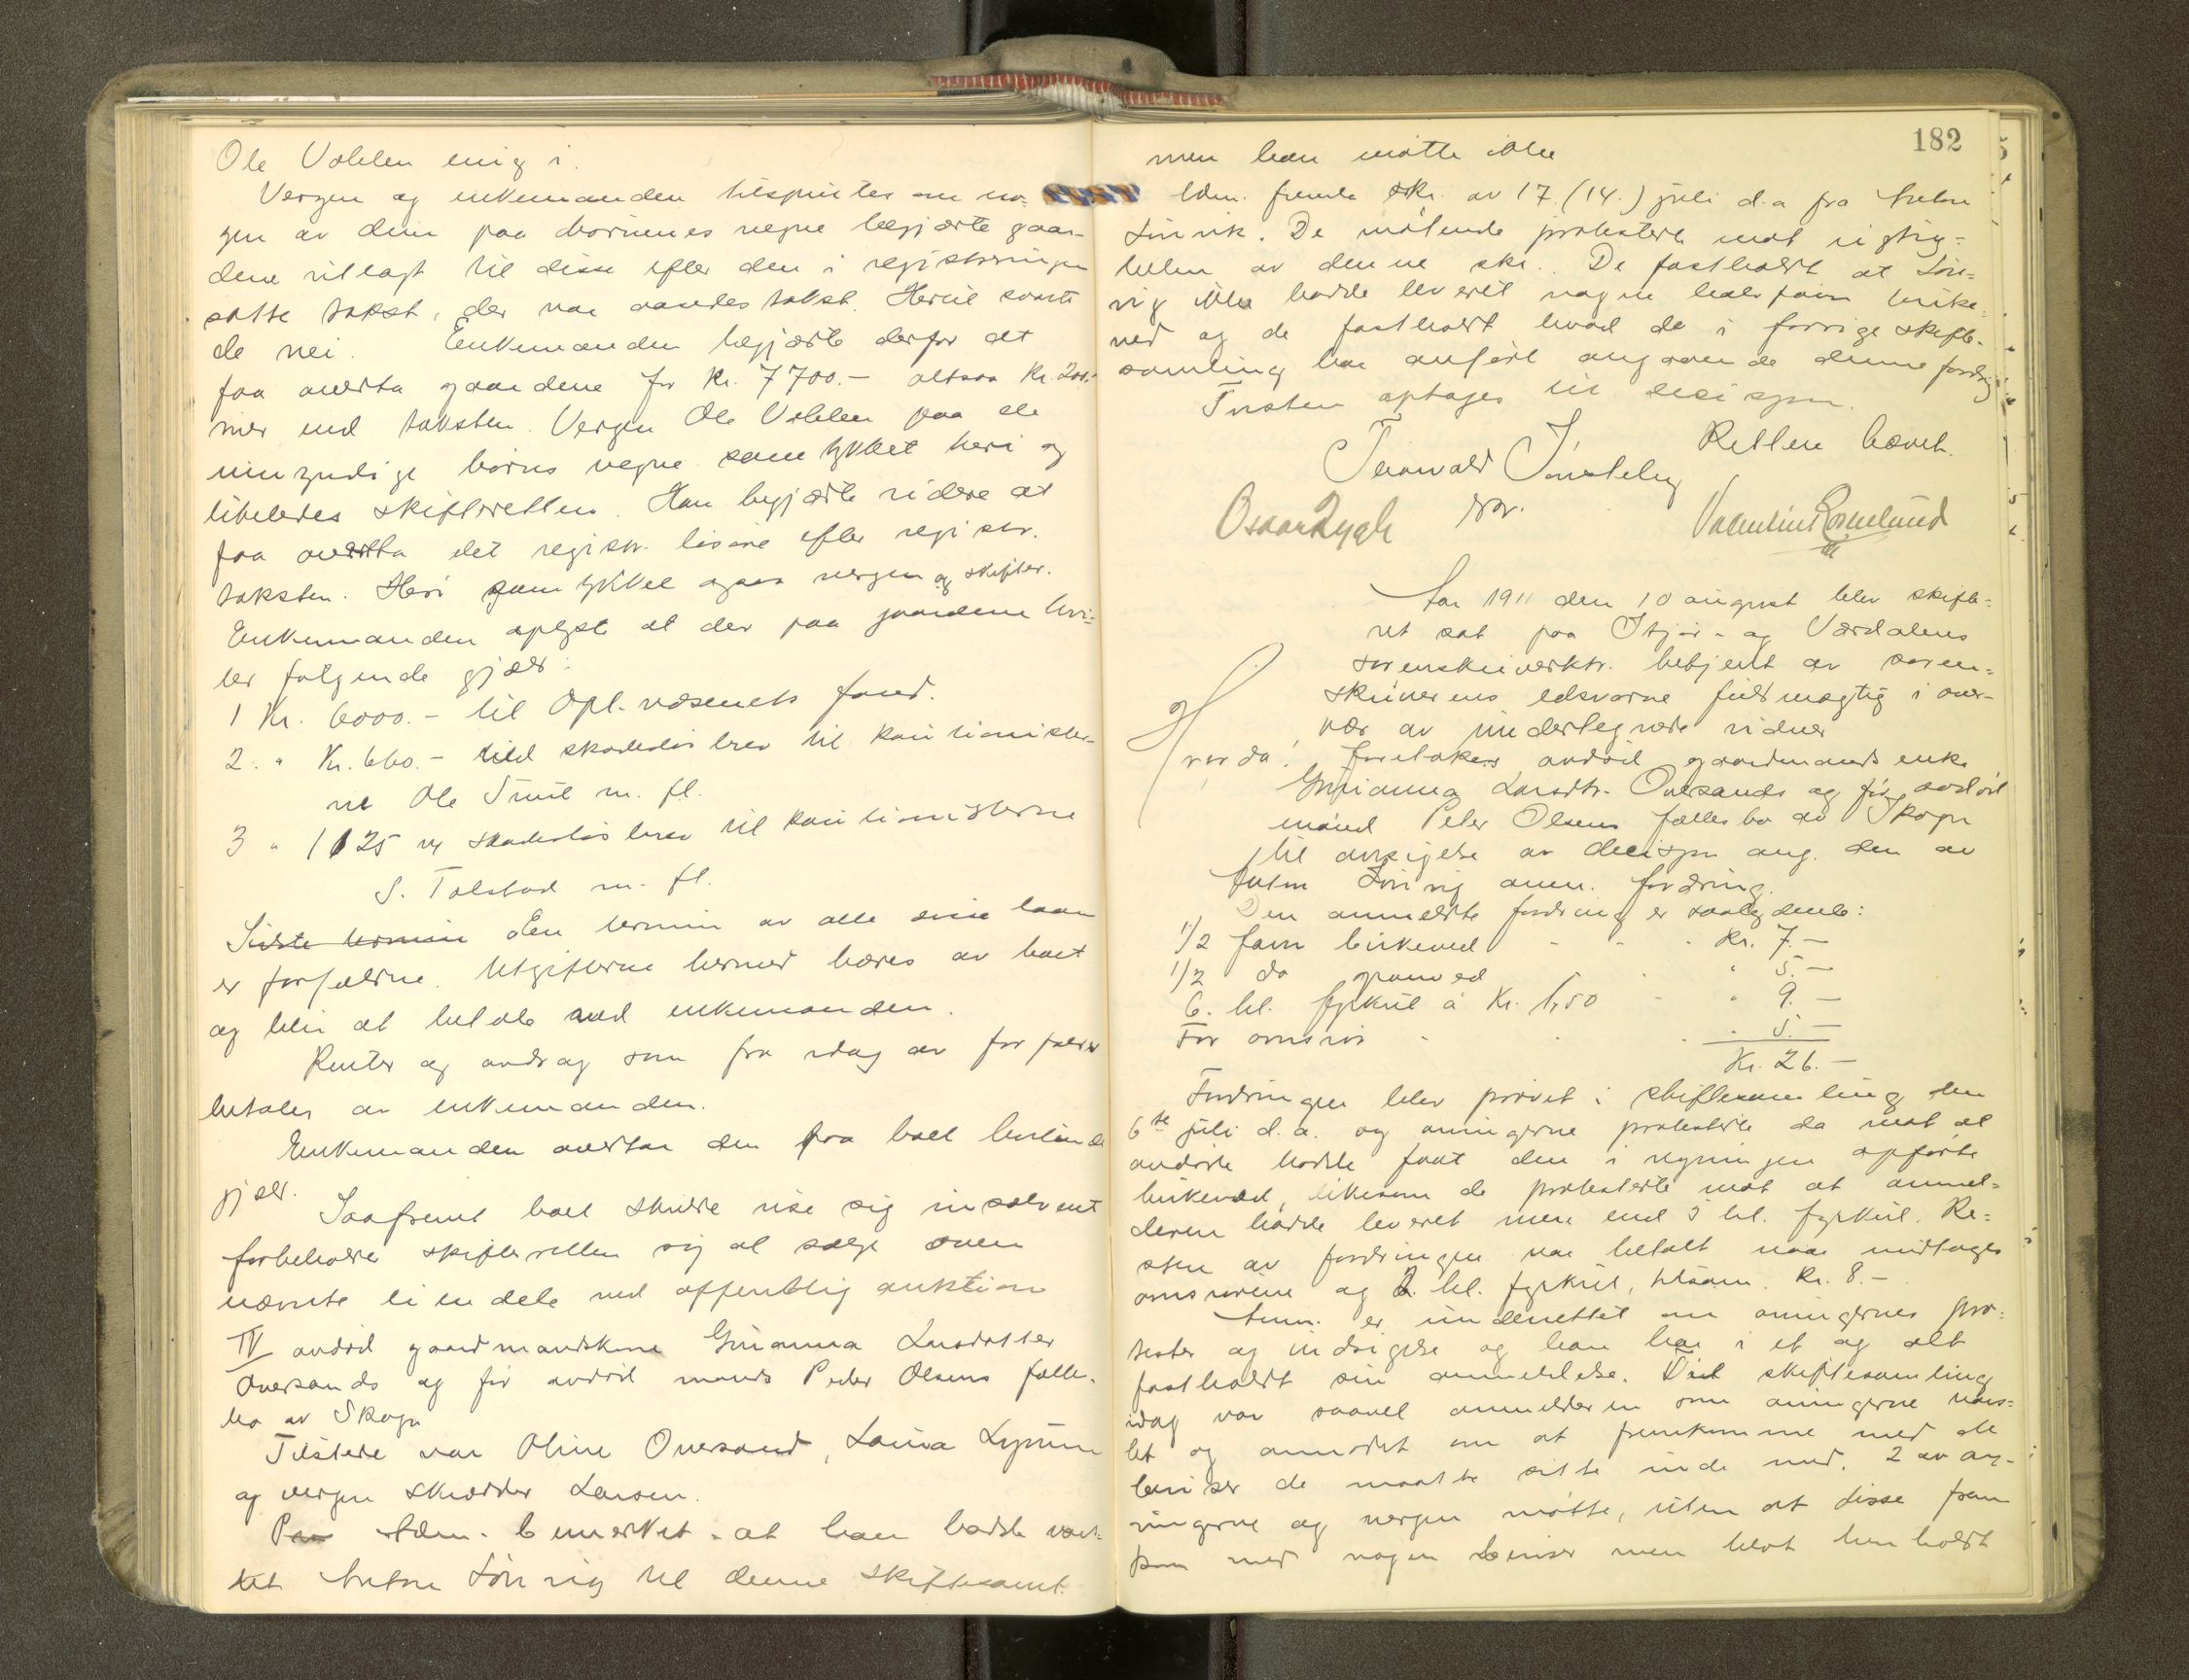 Ole Voklen enig i.
Vergen og enkemanden tilspurtes om no-
gen av dem paa børnenes vegne begjærte gaar-
dene utlagt til disse efter den i registreringen
satte takst, der var aasædes takst. Hertil svarte
de nei. Enkemanden begjærte derfor at
faa overta gaardene for Kr. 7700.- altsaa Kr. 200.-
mer end taksten. Vergen Ole Voklen paa de
umyndige børns vegne samtykket heri og
likeledes skifteretten. Han begjærte videre at
faa overta det registr. løsøre efter registr.
taksten. Heri samtykket ogsaa vergen og skifter.
Enkemanden oplyste at der paa gaardene hvi-
ler følgende gjæld:
1 Kr. 6000.- til Opl.væsenets fond.
2. " Kr. 660.- skadesløsbrev til kautionister-
ne Ole m. fl.
3 " 1125 skadesløsbrev til kautionisterne
S. Tolstad m. fl.
Sidste termin Een termin av alle disse laan
er forfaldne. Utgifterne hermed bæres av boet
og blir at betale ved enkemanden.
Renter og avdrag som fra idag av forfalder
betales av enkemanden.
Enkemanden overtar den paa boet heftende
gjæld.
Saafremt boet skulde vise sig insolvent
forbeholder skifteretten sig at sælge oven
nævnte eiendele ved offentlig auktion
IV avdød gaardmandsenke Gurianna Larsdatter
Oversands og før avdød mands Peder Olsens fælles-
bo av Skogn
Tilstede var Oline Oversand, Laura
og vergen skrædder Larsen.
Paa Adm. bemerket at han hadde vars-
let Anton Sønvig til denne skiftesaml.
182
men han møtte ikke
Adm. fremla skr. av 17. (14.) juli d.a fra Anton
Sønvik. De møtende protesterte mot rigtig-
heten av denne skr. De fastholdt at Søn-
vig ikke hadde leveret nogen halv favn birke-
ved og de fastholdt hvad de i forrige skifte-
samling har anført angaaende denne fordring
Tvisten optages til decisjon.
Retten hævet.
Thorvald
Oscar Rygh
Valentin
Aar 1911 den 10 august blev skifte-
ret sat paa Stjør- og Værdalens
sorenskriverktr. betjent av soren-
skriverens edsvorne fuldmægtig i over-
vær av undertegnede vidner
Hvorda: Foretokes avdød gaardmands enke
Gurianna Larsdtr. Oversands og før avdød
mand Peter Olsens fællesbo av Skogn
til avsigelse av decisjon ang. den av
Anton Sønvig anm. fordring.
Den anmeldte fordring er saalydende:
1/2 favn birkeved - - - Kr. 7.-
1/2 do granved - " 5.-
6. hl. fyrkul à Kr. 1,50 - " 9.-
For - - " 5.-
Kr. 26.-
Fordringen blev prøvet i skiftesamling den
6te juli d.a. og arvingerne protesterte da mot at
avdøde hadde faat den i regningen opførte
birkeved, likesom de protesterte mot at anmel-
deren hadde leveret mere end 5 hl. fyrkul. Re-
sten av fordringen var betalt naar undtages
og 2. hl. fyrkul, tilsam. Kr. 8.-
Anm. er underrettet om arvingernes pro-
tester og indsigelse og han har i et og alt
fastholdt sin anmeldelse. Til skiftesamling
idag var saavel anmelderen som arvingerne vars-
let og anmodet om at fremkomme med de
beviser de maatte sitte inde med. 2 av ar-
vingerne og vergen møtte, uten at disse frem
kom med nogen beviser men blot henholdt